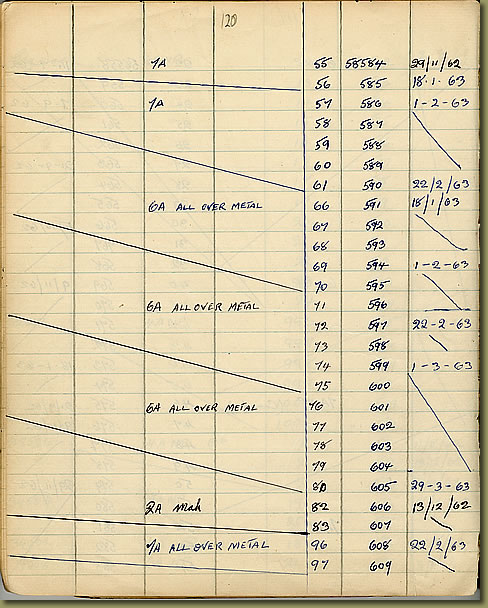 120
7A 55 58584 29/11/62
56 585 18.1.63
7A 57 586 1-2-63
58 587
59 588
60 589
61 590 22/2/63
6A ALL OVER METAL 66 591 18/1/63
67 592
68 593
69 594 1-2-63
70 595
6A ALL OVER METAL 71 596
72 597 22-2-63
73 598
74 599 1-3-63
75 600
6A ALL OVER METAL 76 601
77 602
78 603
79 604
80 605 29-3-63
2A Mah 82 606 13/12/62
83 607
7A ALL OVER METAL 96 608 22/2/63
97 609